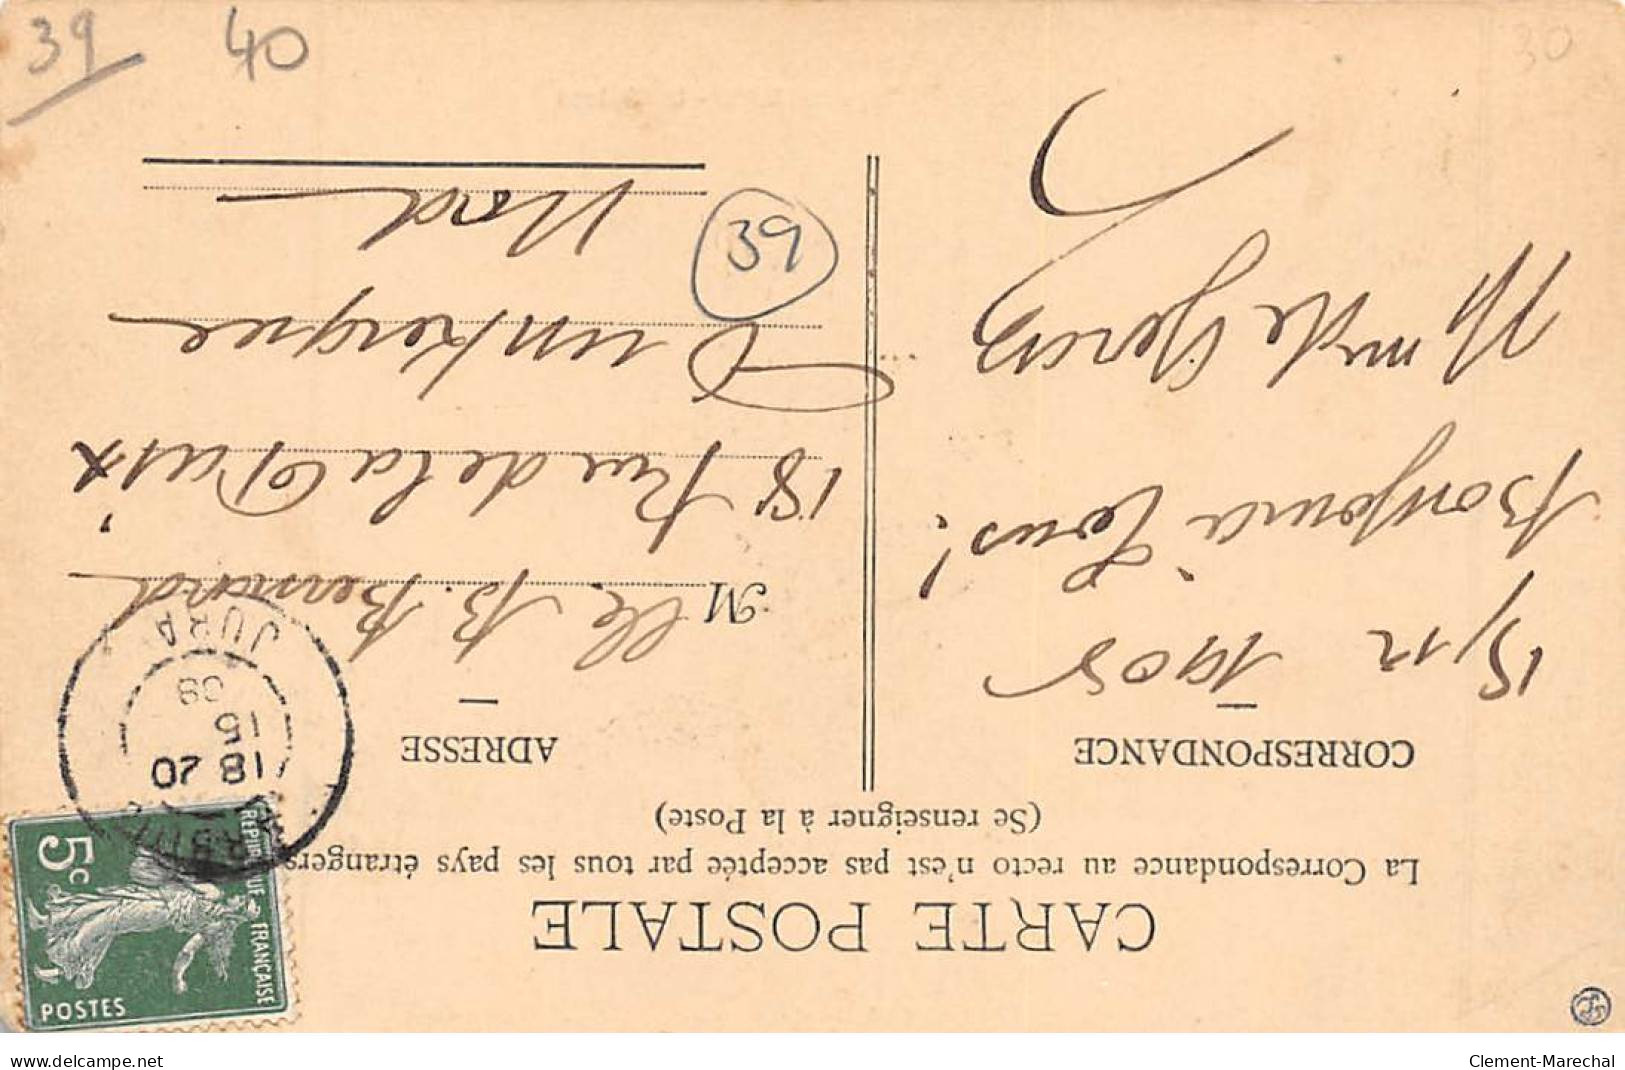 CARTE POSTALE
La Correspondance au recto n'est pas acceptée par tous les pays étrangers
(Se renseigner à la Poste)
CORRESPONDANCE
15/12 1908
Bonjour à tous!
Mme de
ADRESSE
Mlle B. Bernard
18 Rue de la Paix
Dunkerque
Nord
39
39
40
30
POSTES
5c
REPUBLIQUE FRANÇAISE
18 20
15
08
JURA
delcampe.net
Clement-Marechal